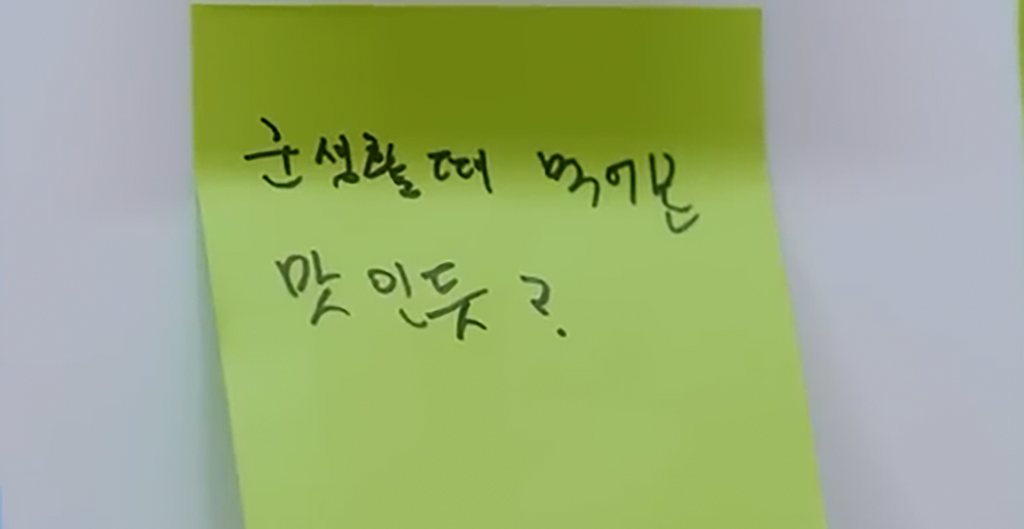 군생활때 먹어본
맛인듯?